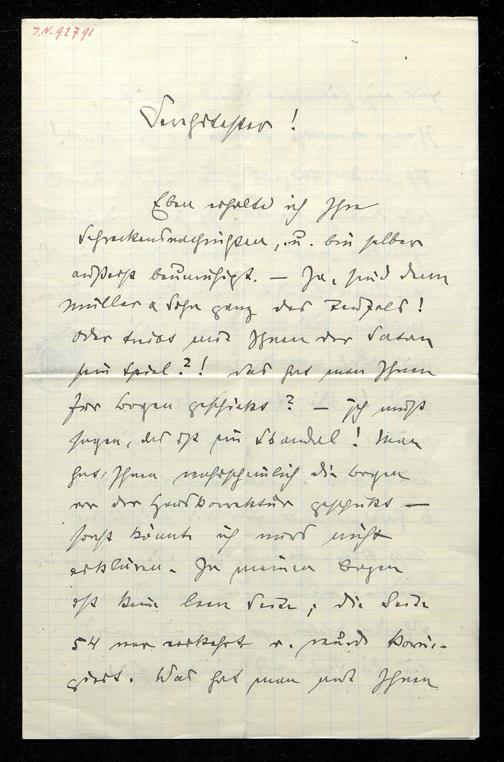 J.N. 92791
Verehrtester!
Eben erhalte ich Ihre
Schreckensnachrichten, u. bin selber
äußerst beunruhigt. — Ja, sind denn
Müller & Sohn ganz des Teufels!
Oder treibt mit Ihnen der Satan
sein Spiel?! Was hat man Ihnen
für Bogen geschickt? — Ich muß
sagen, das ist ein Skandal! Man
hat Ihnen wahrscheinlich die Bogen
vor der Hauskorrektur geschickt —
sonst könnte ich mirs nicht
erklären. In meinen Bogen
ist keine leere Seite; die Seite
54 war verkehrt u. wurde korri-
giert. Was hat man mit Ihnen